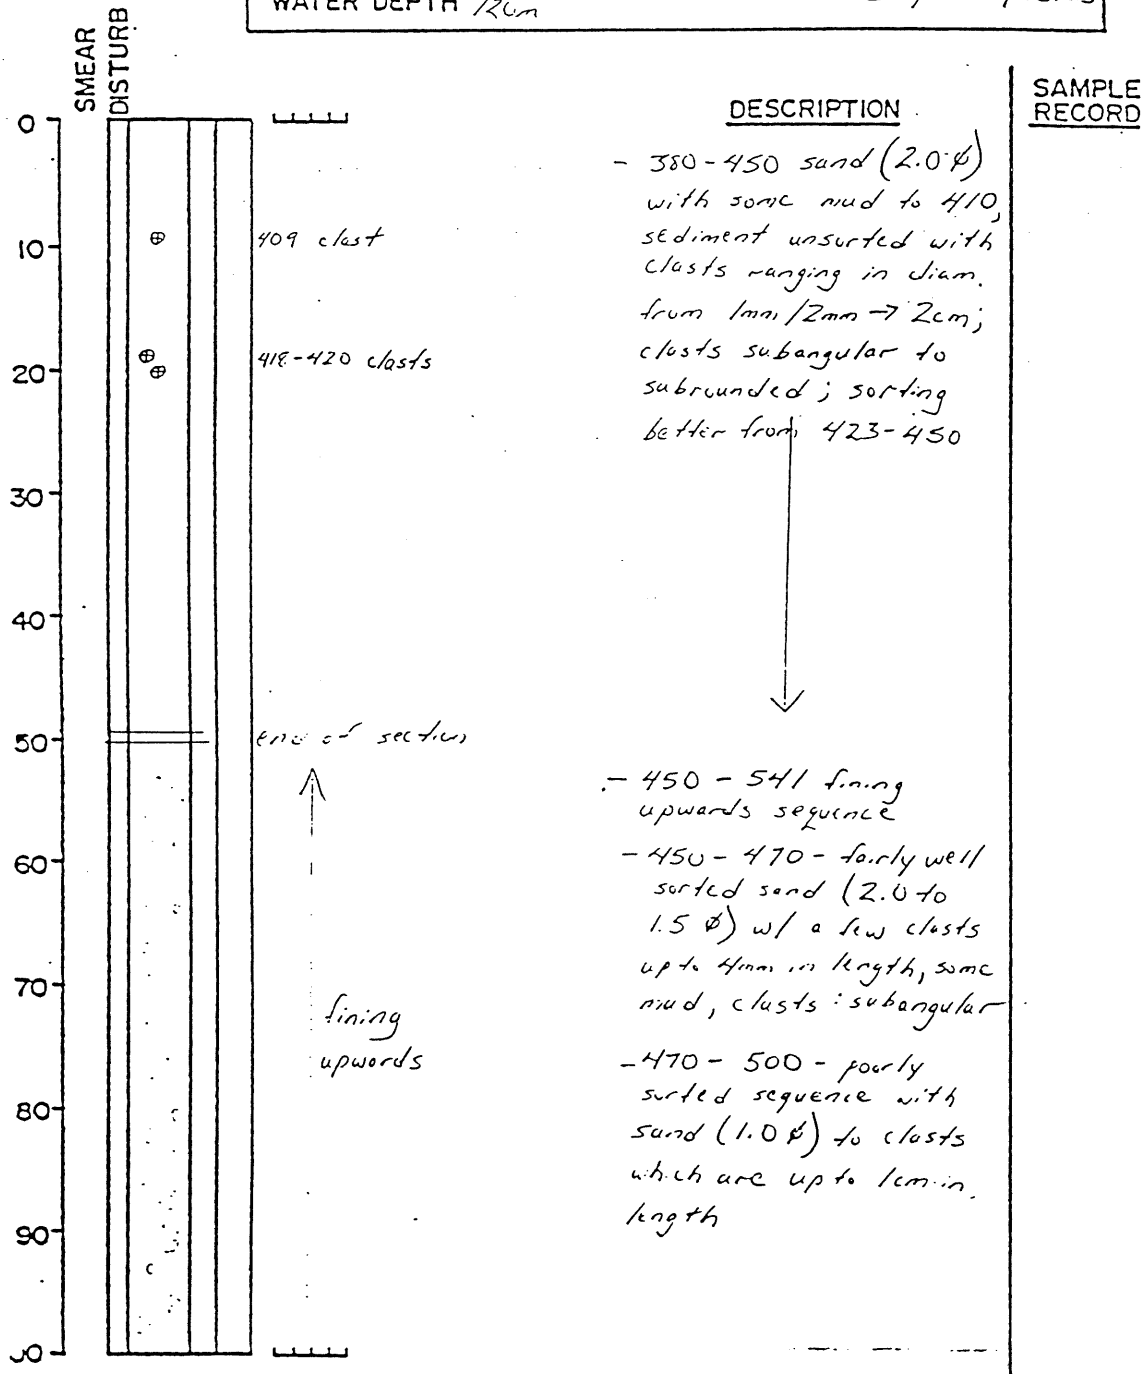 WATER DEPTH 12cm
SMEAR
DISTURB
DESCRIPTION
SAMPLE
RECORD
0
10
20
30
40
50
60
70
80
90
409 clast
418-420 clasts
end of section
fining
upwards
- 380-450 sand (2.0 φ)
with some mud to 410,
sediment unsorted with
clasts ranging in diam.
from 1mm/2mm → 2cm;
clasts subangular to
subrounded; sorting
better from 423-450
- 450 - 541 fining
upwards sequence
- 450 - 470 - fairly well
sorted sand (2.0 to
1.5 φ) w/ a few clasts
up to 4mm in length, some
mud, clasts: subangular
- 470 - 500 - poorly
sorted sequence with
sand (1.0 φ) to clasts
which are up to 1cm in
length